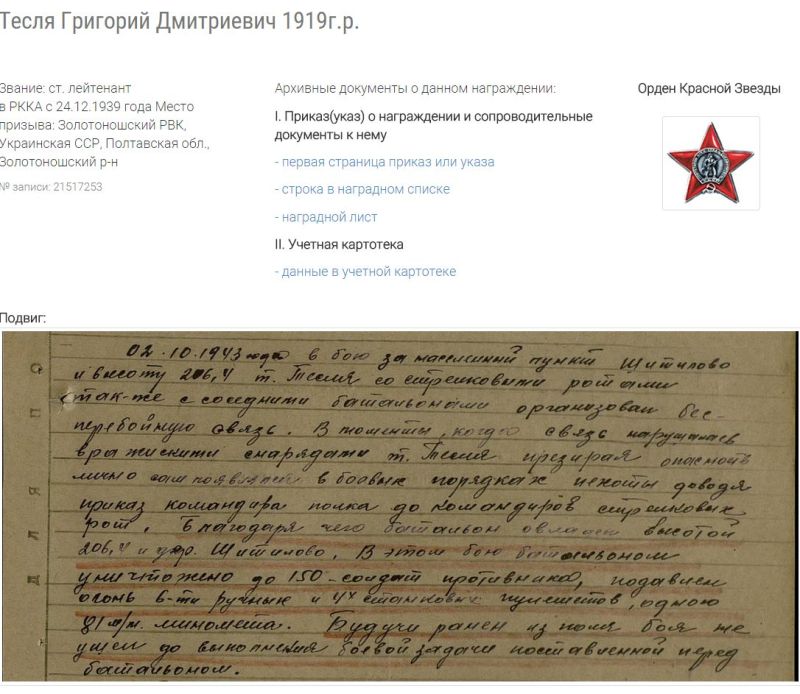 Тесля Григорий Дмитриевич 1919г.р.
Звание: ст. лейтенант
в РККА с 24.12.1939 года Место
призыва: Золотоношский РВК,
Украинская ССР, Полтавская обл.,
Золотоношский р-н
№ записи: 21517253
Архивные документы о данном награждении:
I. Приказ(указ) о награждении и сопроводительные
документы к нему
- первая страница приказ или указа
- строка в наградном списке
- наградной лист
II. Учетная картотека
- данные в учетной картотеке
Орден Красной Звезды
Подвиг:
02.10.1943 года в бою за населенный пункт Шитилово
и высоту 206,4 т. Тесля со стрелковыми ротами
так-же с соседними батальонами организовал бес-
перебойную связь. В моменты, когда связь нарушалась
вражискими снарядами т. Тесля презирая опасность
лично сам появлялся в боевых порядках пехоты доводя
приказ командира полка до командиров стрелковых
рот. Благодаря чего батальон овладел высотой
206,4 и Шитилово. В этом бою батальоном
уничтожено до 150-солдат противника, подавлен
огонь 6-ти ручных и 4х станковых пулеметов, одного
81 м/м. миномета. Будучи ранен из поля боя не
ушел до выполнения боевой задачи поставленной перед
батальоном.
ДЛЯ ПО